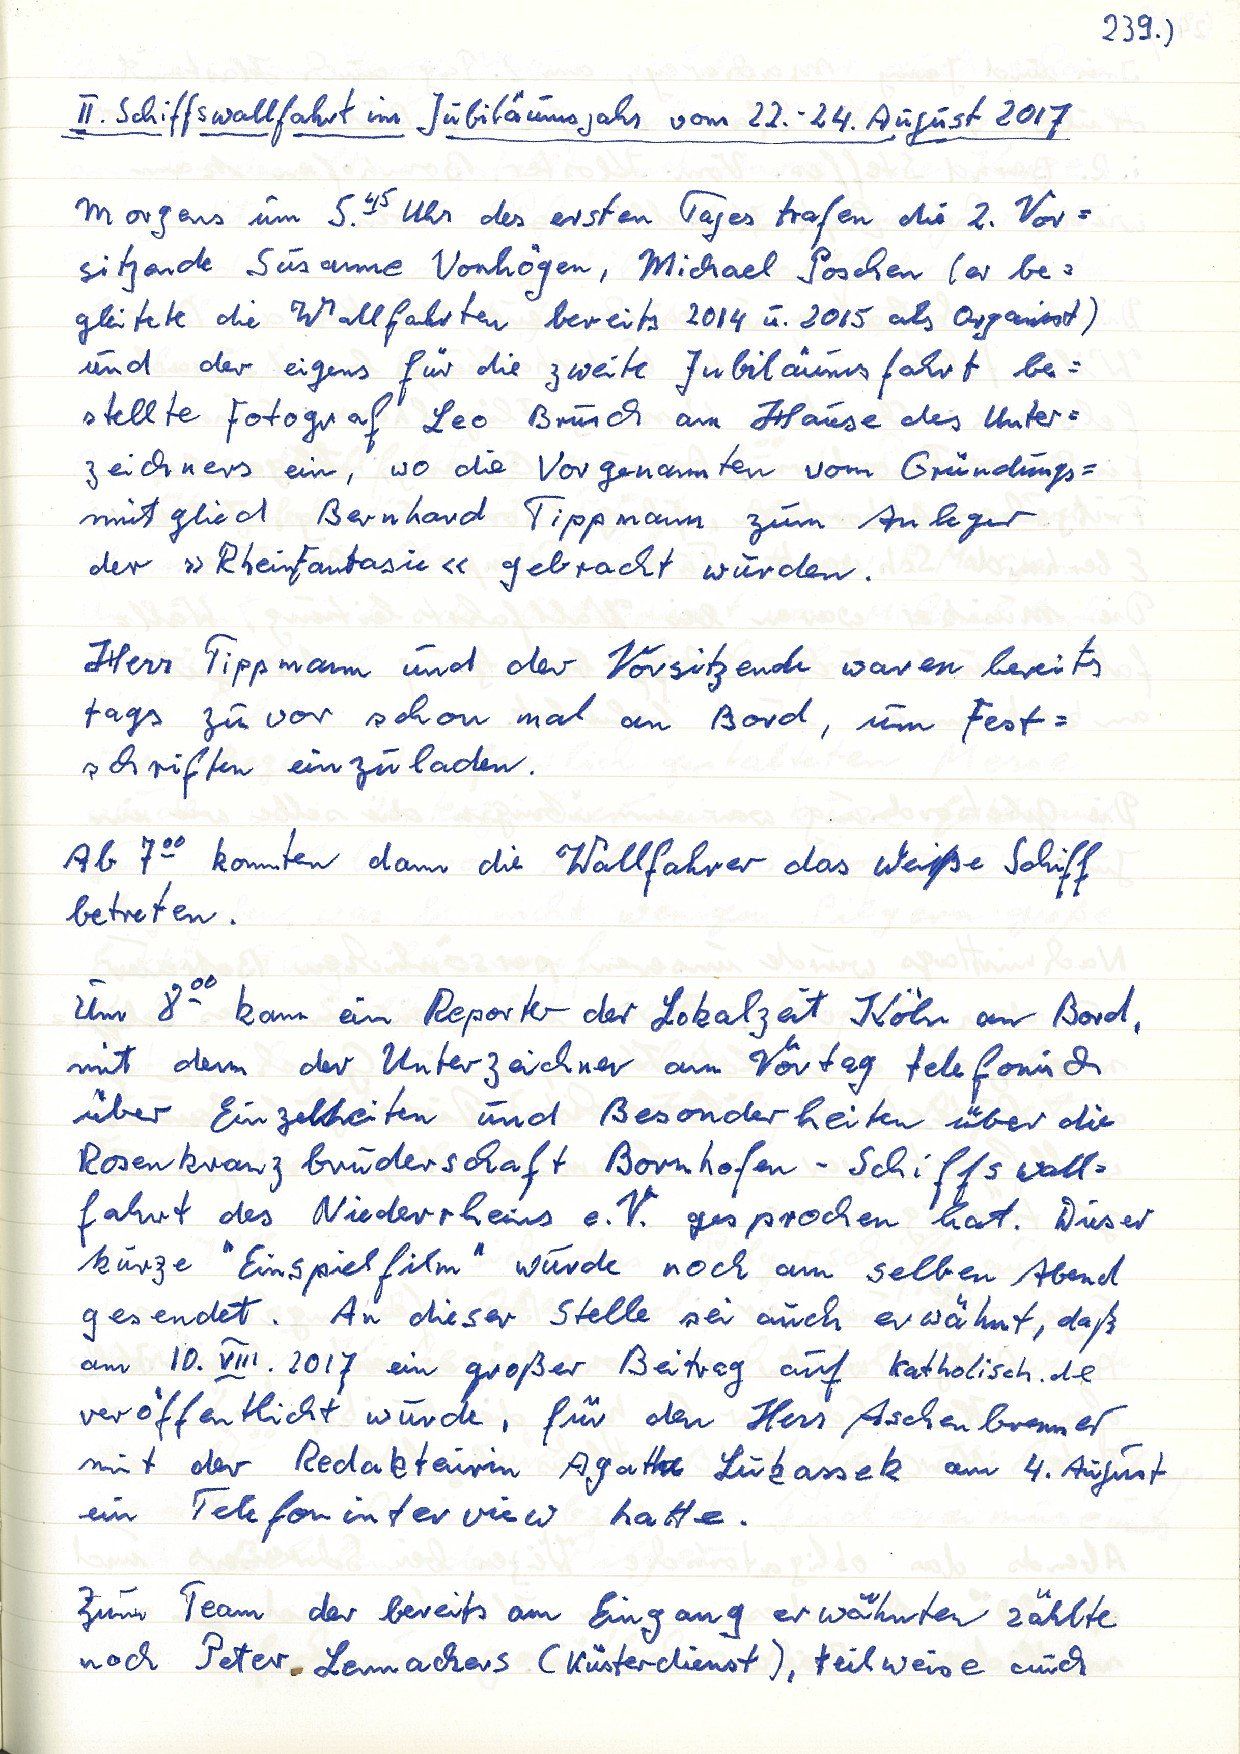 239.)
II. Schiffswallfahrt im Jubiläumsjahr vom 22.-24. August 2017
Morgens um 5.45 Uhr des ersten Tages trafen die 2. Vor=
sitzende Susanne Vonhögen, Michael Poschen (er be=
gleitete die Wallfahrten bereits 2014 u. 2015 als Organist)
und der eigens für die zweite Jubiläumsfahrt be=
stellte Fotograf Leo Brüsch am Hause des Unter=
zeichners ein, wo die Vorgenannten vom Gründungs=
mitglied Bernhard Tippmann zum Anleger
der »Rheinfantasie« gebracht wurden.
Herr Tippmann und der Vorsitzende waren bereits
tags zuvor schon mal an Bord, um Fest=
schriften einzuladen.
Ab 7 00 konnten dann die Wallfahrer das weiße Schiff
betreten.
Um 8 00 kam ein Reporter der Lokalzeit Köln an Bord,
mit dem der Unterzeichner am Vortag telefonisch
über Einzelheiten und Besonderheiten über die
Rosenkranzbruderschaft Bornhofen - Schiffswall=
fahrt des Niederrheins e.V. gesprochen hat. Dieser
kurze "Einspielfilm" wurde noch am selben Abend
gesendet. An dieser Stelle sei auch erwähnt, daß
am 10. VIII. 2017 ein großer Beitrag auf katholisch.de
veröffentlicht wurde, für den Herr Aschenbrenner
mit der Redakteurin Agathe Lukassek am 4. August
ein Telefoninterview hatte.
Zum Team der bereits am Eingang erwähnten zählte
noch Peter Lennackers (Küsterdienst), teilweise auch